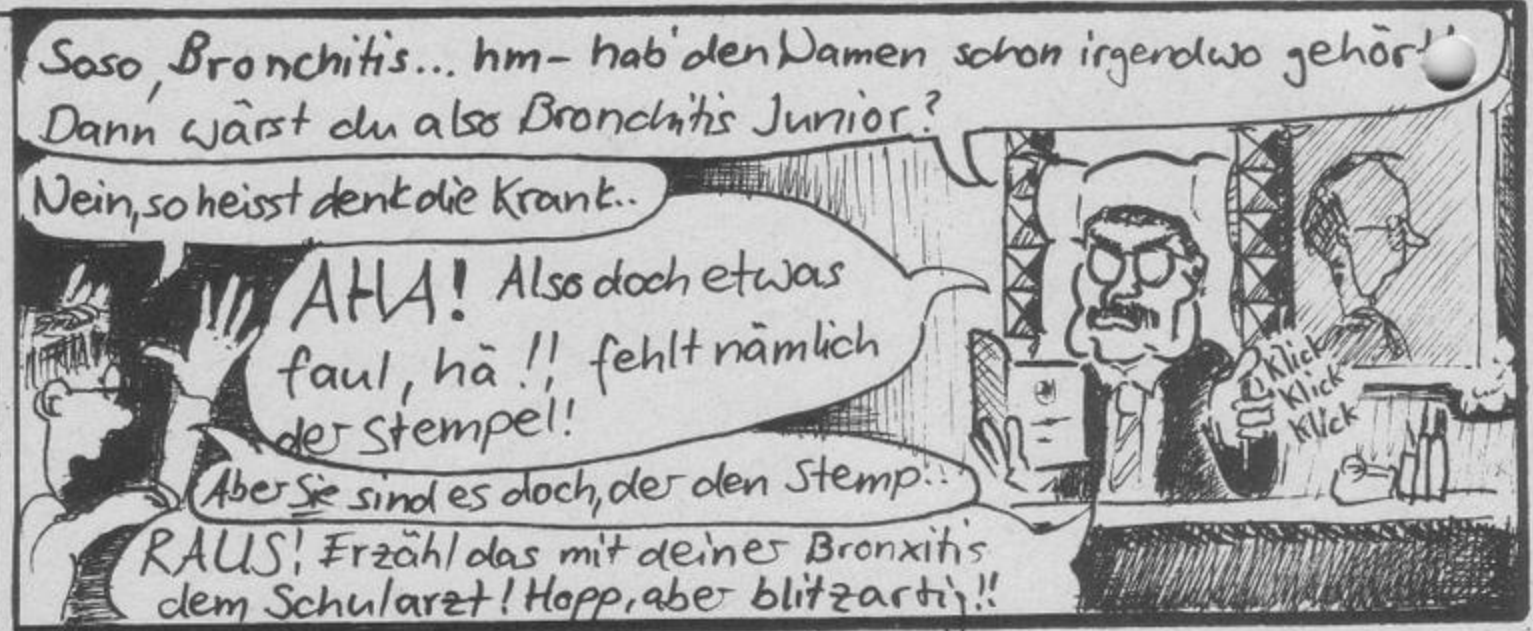 Soso, Bronchitis... hm - hab' den Namen schon irgendwo gehört!
Dann wärst du also Bronchitis Junior?
Nein, so heisst denk die Krank..
AHA! Also doch etwas
faul, hä!! fehlt nämlich
der Stempel!
Klick
Klick
Klick
Aber Sie sind es doch, der den Stemp..
RAUS! Erzähl das mit deiner Bronxitis
dem Schularzt! Hopp, aber blitzartig!!